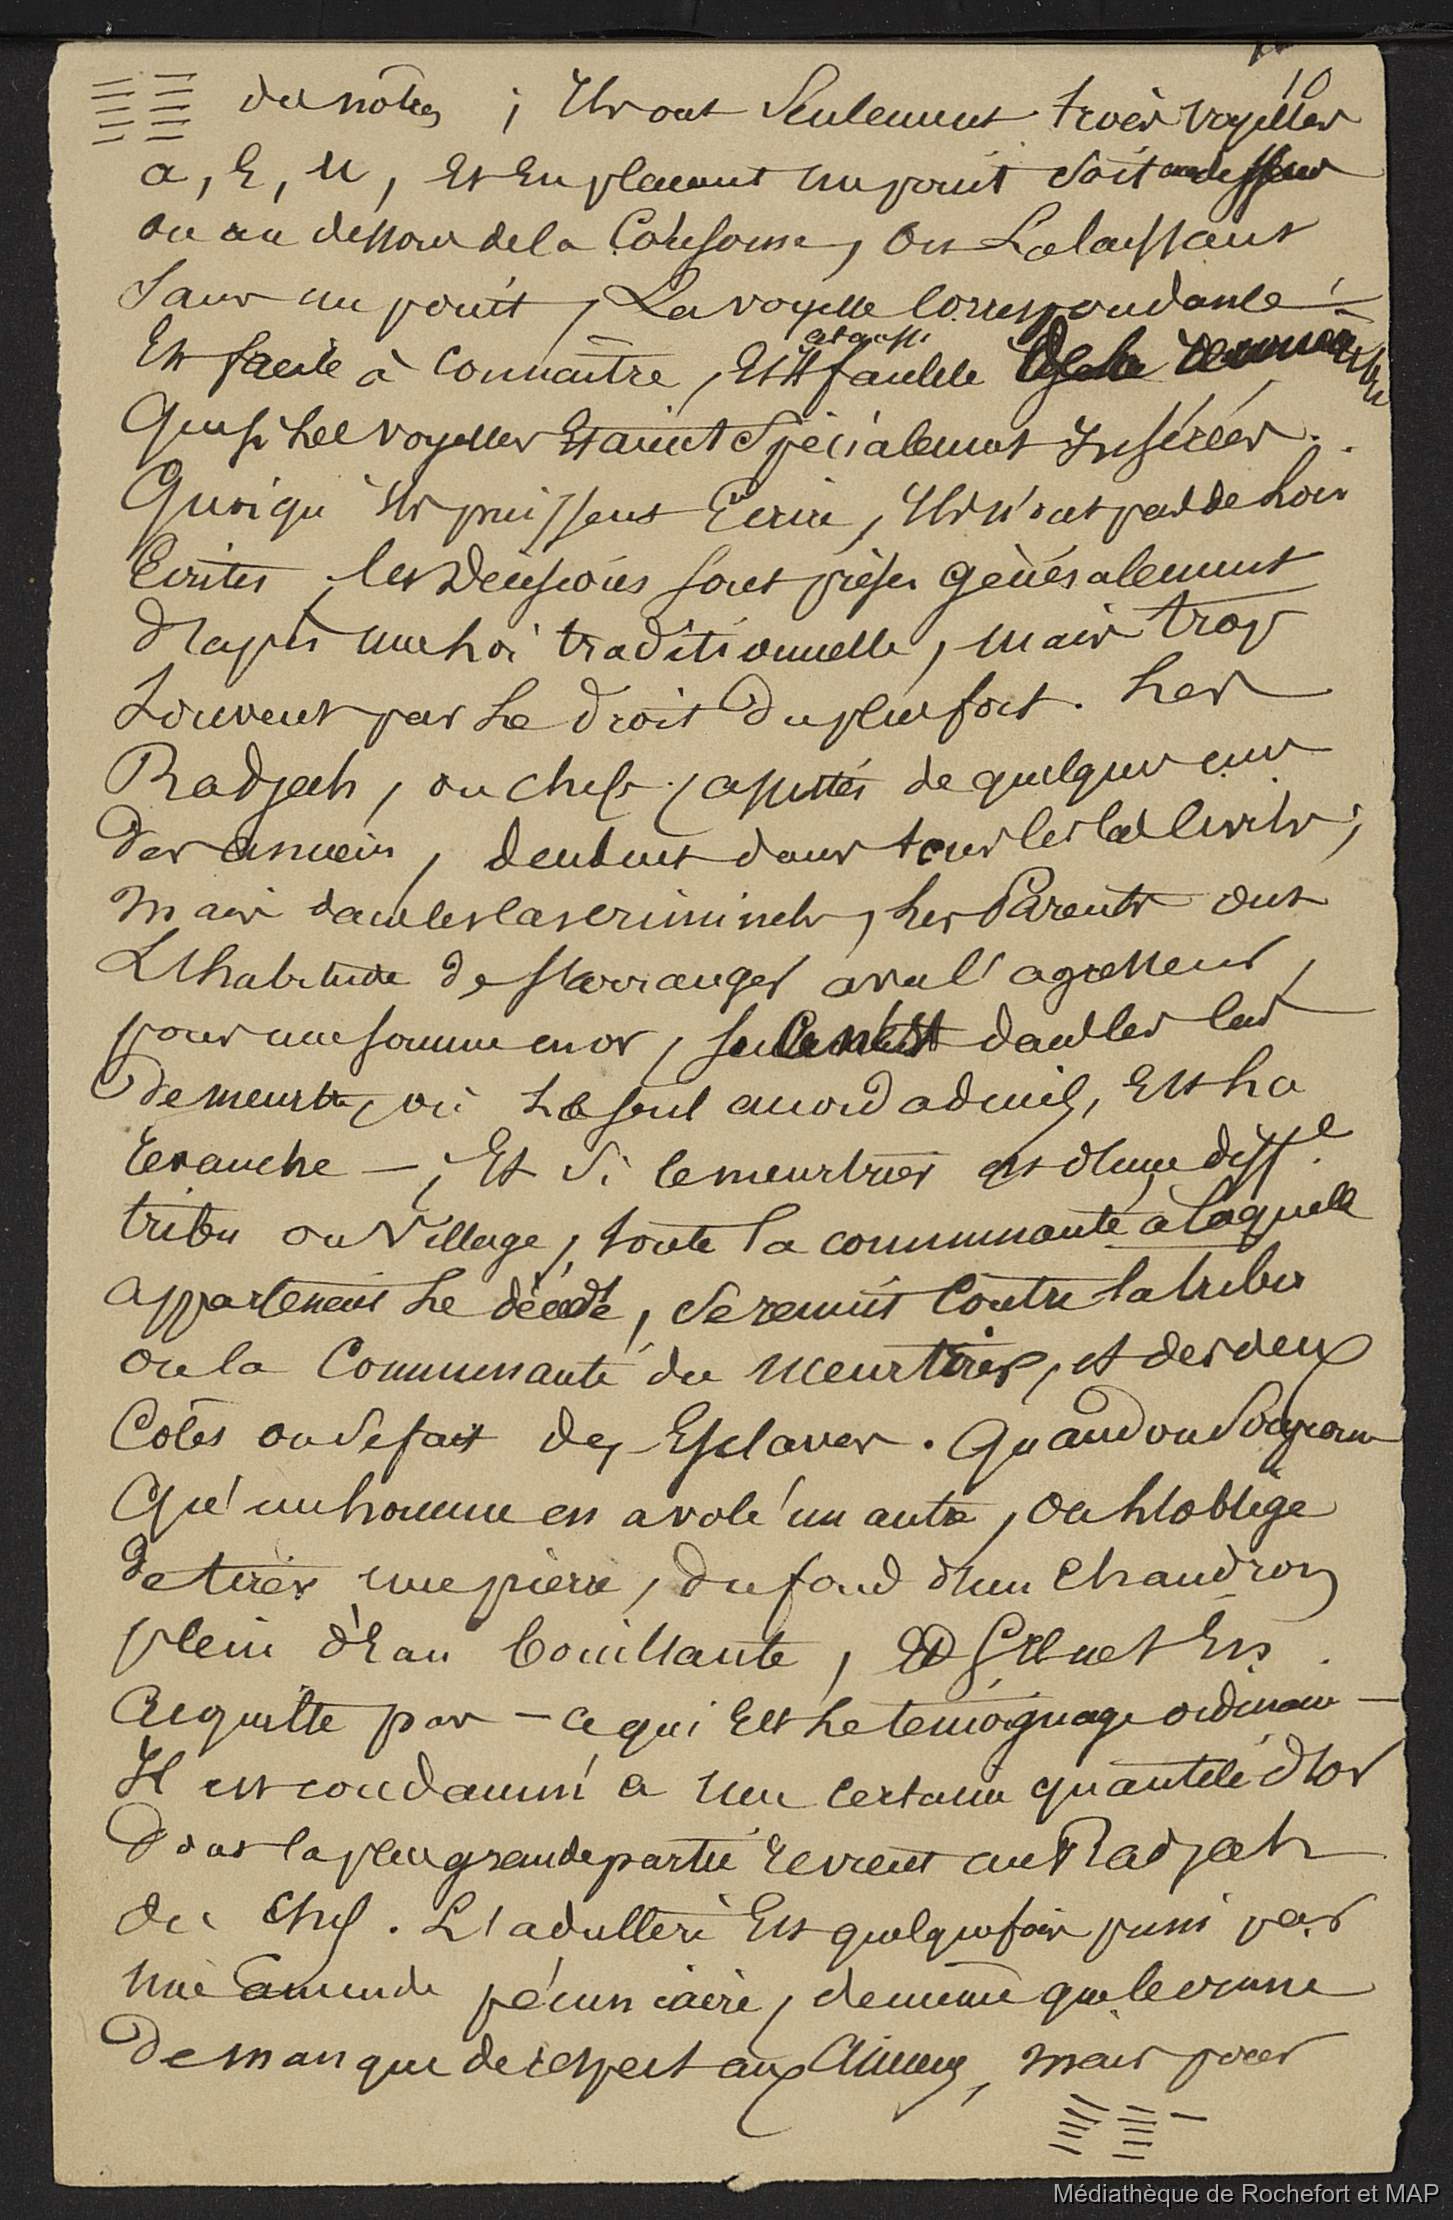 10
des nôtres ; Ils ont Seulement trois voyelles
a, E, U, Et En placant un point soit au dessus
ou au dessous de la Consonne, ou La laissant
sans un point, La voyelle Correspondante
Est facile à Connaître, Et Il faulile
Que si Les voyelles Etaient Spécialement Insérées.
Quoiqu'ils puissent Ecrire, Ils n'ont pas de Lois
Ecrites, les Décisions sont prises généralement
D'après une Loi traditionnelle, mais trop
Souvent par Le droit Du plus fort. Les
Radjah, ou chefs, assistés de quelques uns
Des anciens, décident dans tous les cas civils ;
Mais dans les cas criminels, Les Parents ont
L'habitude de s'arranger avec l'agresseur,
pour une somme en or, dans les cas
De meurtre, où Le seul accord admis, Est La
revanche — ; Et Si le meurtrier est d'une diff.e
tribu ou Village, toute la communauté à laquelle
appartenait Le décédé, se reunit Contre la tribu
ou la Communauté du Meurtrier, et des deux
Côtés on se fait des Esclaves. Quand on soupconne
Qu'un homme en a volé un autre, on L'oblige
de tirer une pierre, du fond d'un Chaudron
plein d'Eau bouillante, Et S'Il n'est En
acquitte par — ce qui Est Le temoignage ordinaire —
Il est condamné a une certaine quantité d'or
Dont la plus grande partie revient au Radjah
ou Chef. L'adultère Est quelquefois puni par
une Amende pécuniaire, de meme que le crime
De manque de respect aux Anciens, mais pour
Médiathèque de Rochefort et MAP